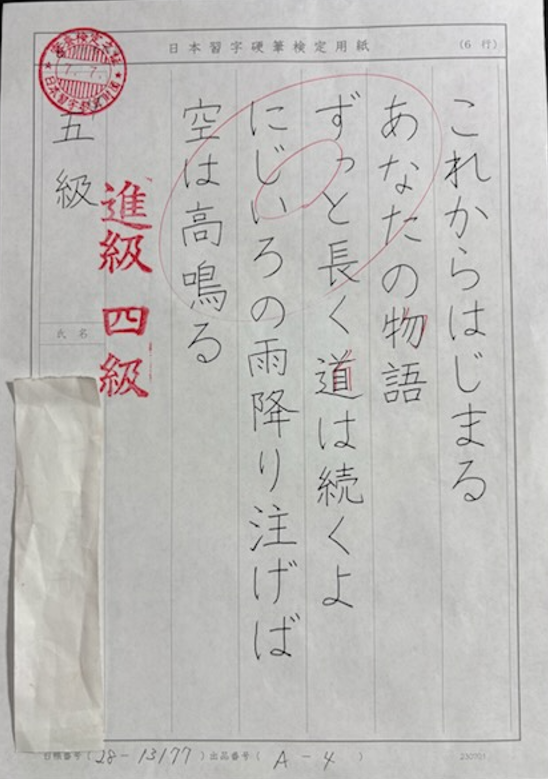 日本習字硬筆検定用紙
(6行)
これからはじまる
あなたの物語
ずっと長く道は続くよ
にじいろの雨降り注げば
空は高鳴る
7.7.
五級
進級 四級
氏名
(28-13177)出品番号(A-4)
230701